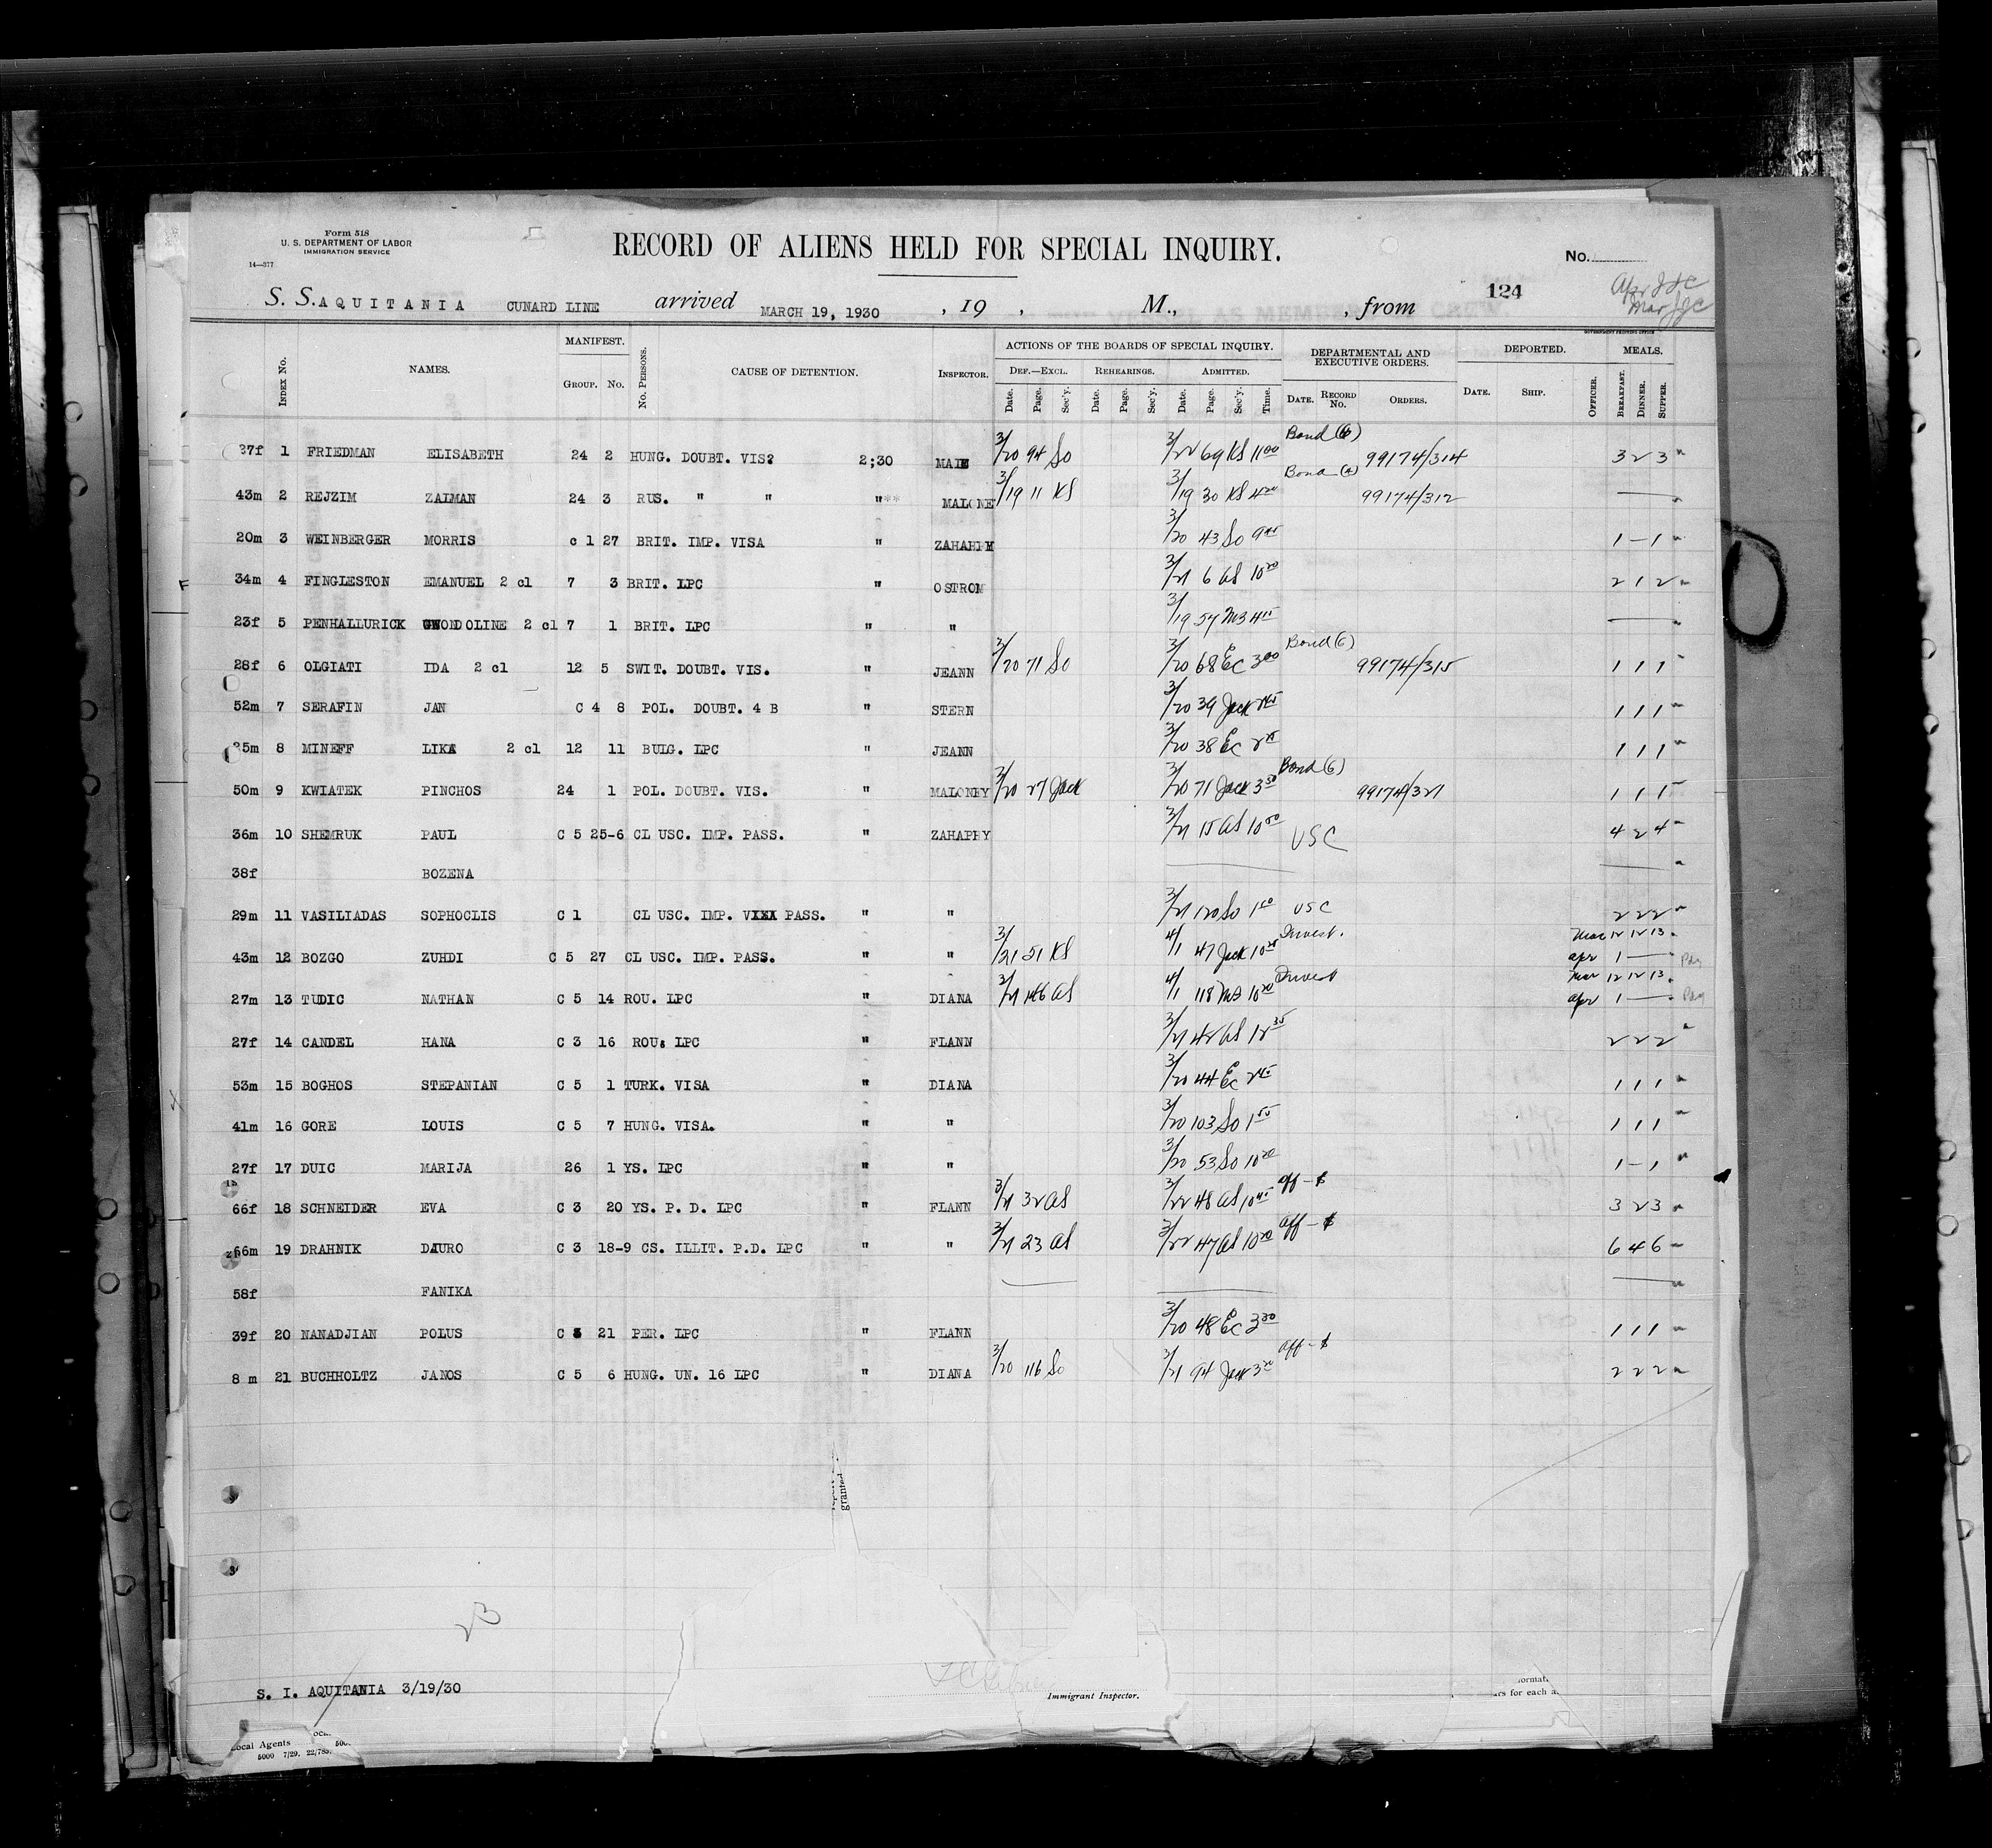 Form 518
U. S. DEPARTMENT OF LABOR
IMMIGRATION SERVICE
14—377
RECORD OF ALIENS HELD FOR SPECIAL INQUIRY.
No.
124
S. S. AQUITANIA CUNARD LINE arrived MARCH 19, 1930 , 19 , M., , from
GOVERNMENT PRINTING OFFICE
INDEX NO. NAMES. MANIFEST. GROUP. NO. NO. PERSONS. CAUSE OF DETENTION. INSPECTOR. ACTIONS OF THE BOARDS OF SPECIAL INQUIRY. DEPARTMENTAL AND EXECUTIVE ORDERS. DEPORTED. MEALS.
DEF.—EXCL. REHEARINGS. ADMITTED.
Date. Page. Sec'y. Date. Page. Sec'y. Date. Page. Sec'y. Time. DATE. RECORD NO. ORDERS. DATE. SHIP. OFFICER. BREAKFAST. DINNER. SUPPER.
37f 1 FRIEDMAN ELISABETH 24 2 HUNG. DOUBT. VIS? 2;30 3/20 94 So 3/22 69 KS 11 00 Bond 99174/314 3 2 3
43m 2 REJZIM ZAIMAN 24 3 RUS. " " "** MALONE 3/19 11 KS 3/19 30 KS 4 20 Bond (4) 99174/312
20m 3 WEINBERGER MORRIS c 1 27 BRIT. IMP. VISA " 3/20 43 So 9 45 1 - 1
34m 4 FINGLESTON EMANUEL 2 cl 7 3 BRIT. LPC " OSTROM 3/21 6 AS 10 20 2 1 2
23f 5 PENHALLURICK GWONDOLINE 2 cl 7 1 BRIT. LPC " " 3/19 57 MB 4 15
28f 6 OLGIATI IDA 2 cl 12 5 SWIT. DOUBT. VIS. " JEANN 3/20 71 So 3/20 68 Ec 3 00 Bond (6) 99174/315 1 1 1
52m 7 SERAFIN JAN C 4 8 POL. DOUBT. 4 B " STERN 3/20 39 Jack 2 45 1 1 1
35m 8 MINEFF LIKA 2 cl 12 11 BULG. LPC " JEANN 3/20 38 Ec 1 1 1
50m 9 KWIATEK PINCHOS 24 1 POL. DOUBT. VIS. " MALONEY 3/20 27 Jack 3/20 71 Jack 3 50 Bond (6) 99174/321 1 1 1
36m 10 SHEMRUK PAUL C 5 25-6 CL USC. IMP. PASS. " ZAHAPHY 3/21 15 AS 10 50 USC 4 2 4
38f BOZENA
29m 11 VASILIADAS SOPHOCLIS C 1 CL USC. IMP. VXXX PASS. " " 3/21 120 So 1 50 USC 2 2 2
43m 12 BOZGO ZUHDI C 5 27 CL USC. IMP. PASS. " " 3/21 51 KS 4/1 47 Jack 10 Invest. Mar 12 12 13
apr 1
27m 13 TUDIC NATHAN C 5 14 ROU. LPC " DIANA 3/21 146 AS 4/1 118 MB 10 20 Invest Mar 12 12 13
apr 1
27f 14 CANDEL HANA C 3 16 ROU. LPC " FLANN 3/21 42 AS 12 35 2 2 2
53m 15 BOGHOS STEPANIAN C 5 1 TURK. VISA " DIANA 3/20 44 Ec 2 45 1 1 1
41m 16 GORE LOUIS C 5 7 HUNG. VISA. " " 3/20 103 So 1 55 1 1 1
27f 17 DUIC MARIJA 26 1 YS. LPC " " 3/20 53 So 10 20 1 - 1
66f 18 SCHNEIDER EVA C 3 20 YS. P. D. LPC " FLANN 3/21 32 AS 3/22 48 AS 10 45 Aff - $ 3 2 3
66m 19 DRAHNIK DAURO C 3 18-9 CS. ILLIT. P.D. LPC " " 3/21 23 AS 3/22 47 AS 10 20 Aff - $ 6 4 6
58f FANIKA
39f 20 NANADJIAN POLUS C 3 21 PER. LPC " FLANN 3/20 48 Ec 3 30 1 1 1
8 m 21 BUCHHOLTZ JANOS C 5 6 HUNG. UN. 16 LPC " DIANA 3/20 116 So 3/21 94 Jack 3 20 Aff - $ 2 2 2
granted
S. I. AQUITANIA 3/19/30
Immigrant Inspector.
Local Agents
5000 7/29.